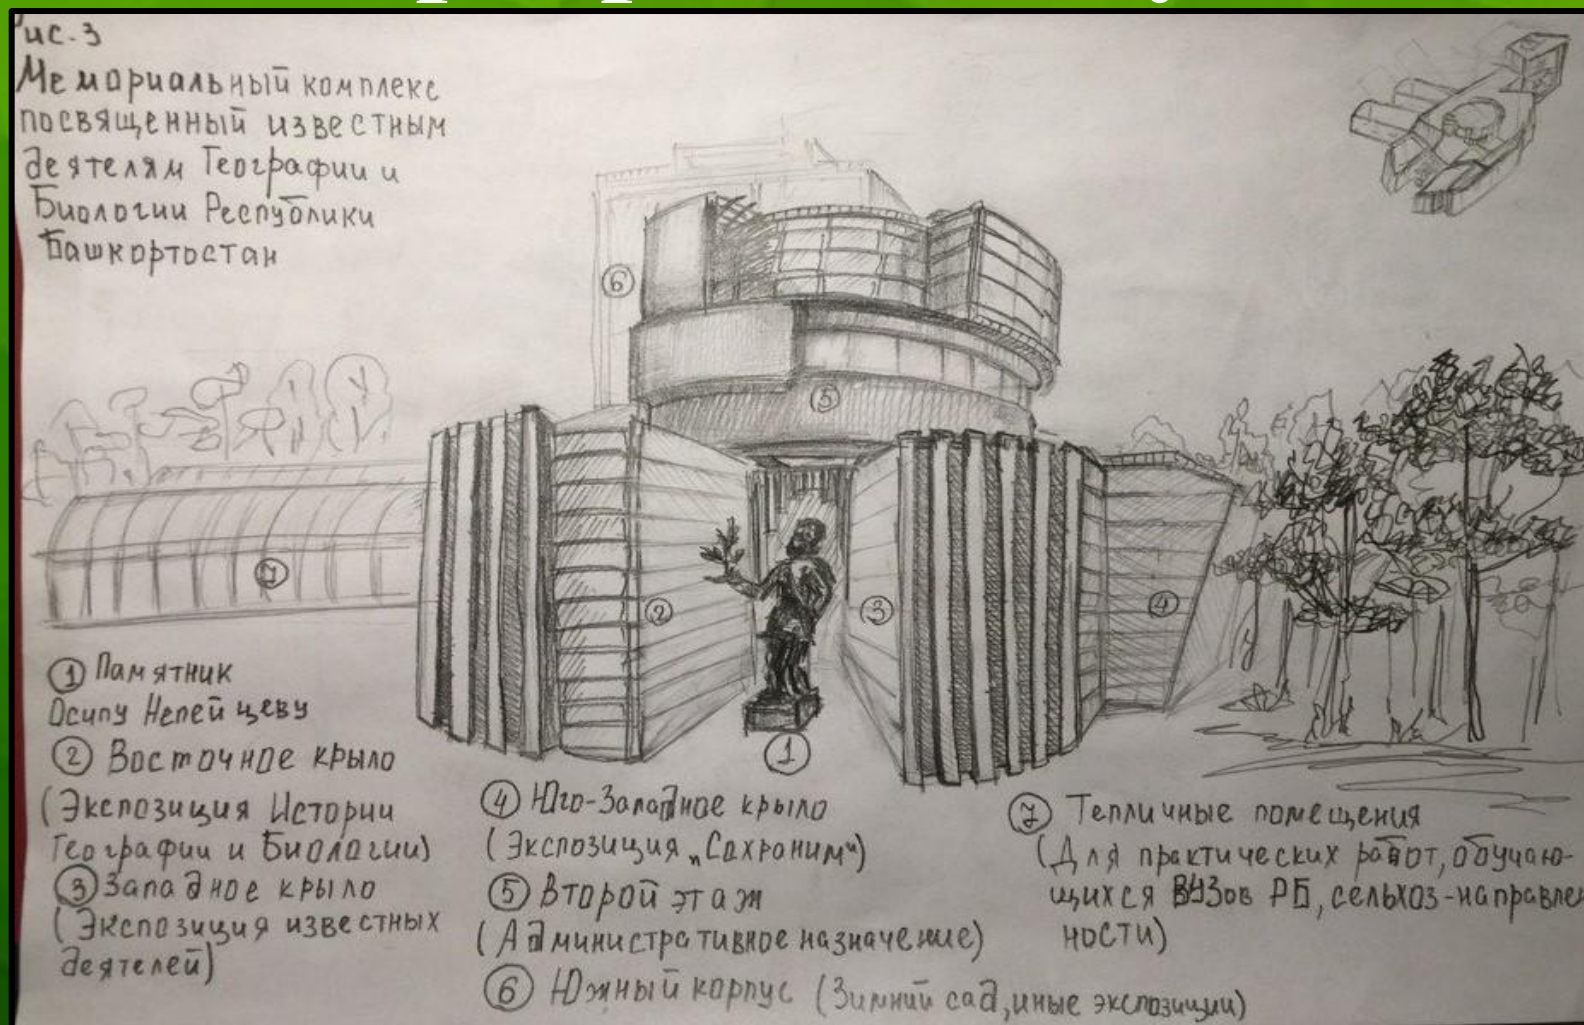 Рис.3
Мемориальный комплекс
посвященный известным
деятелям Географии и
Биологии Республики
Башкортостан
6
5
7
2
3
4
1
① Памятник
Осипу Непейцеву
② Восточное крыло
(Экспозиция Истории
Географии и Биологии)
③ Западное крыло
(Экспозиция известных
деятелей)
④ Юго-Западное крыло
(Экспозиция „Сохраним“)
⑤ Второй этаж
(Административное назначение)
⑥ Южный корпус (Зимний сад, иные экспозиции)
⑦ Тепличные помещения
(Для практических работ, обучаю-
щихся ВУЗов РБ, сельхоз-направлен
ности)